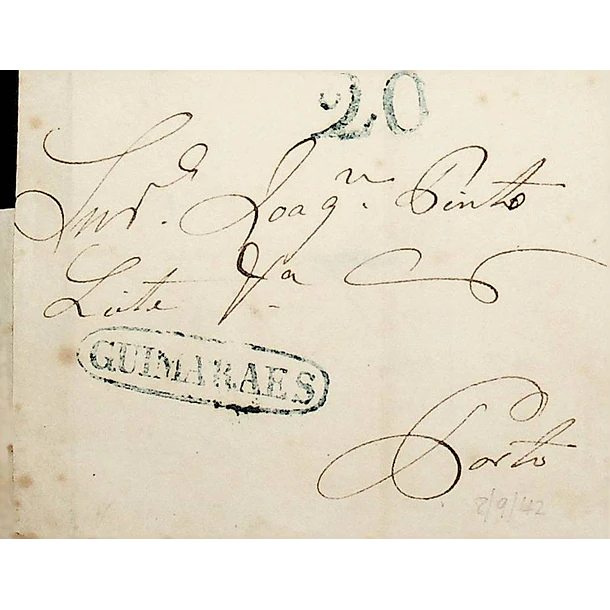 20
Snr. Joaqn. Pinto
Leite Fa
GUIMARAES
Porto
8/9/42